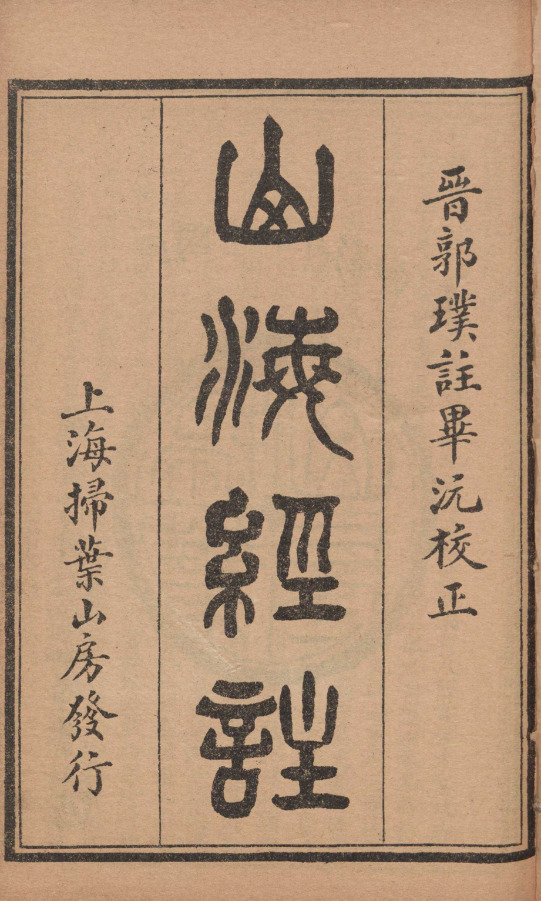 晉郭璞註畢沅校正
山海經註
上海掃葉山房發行